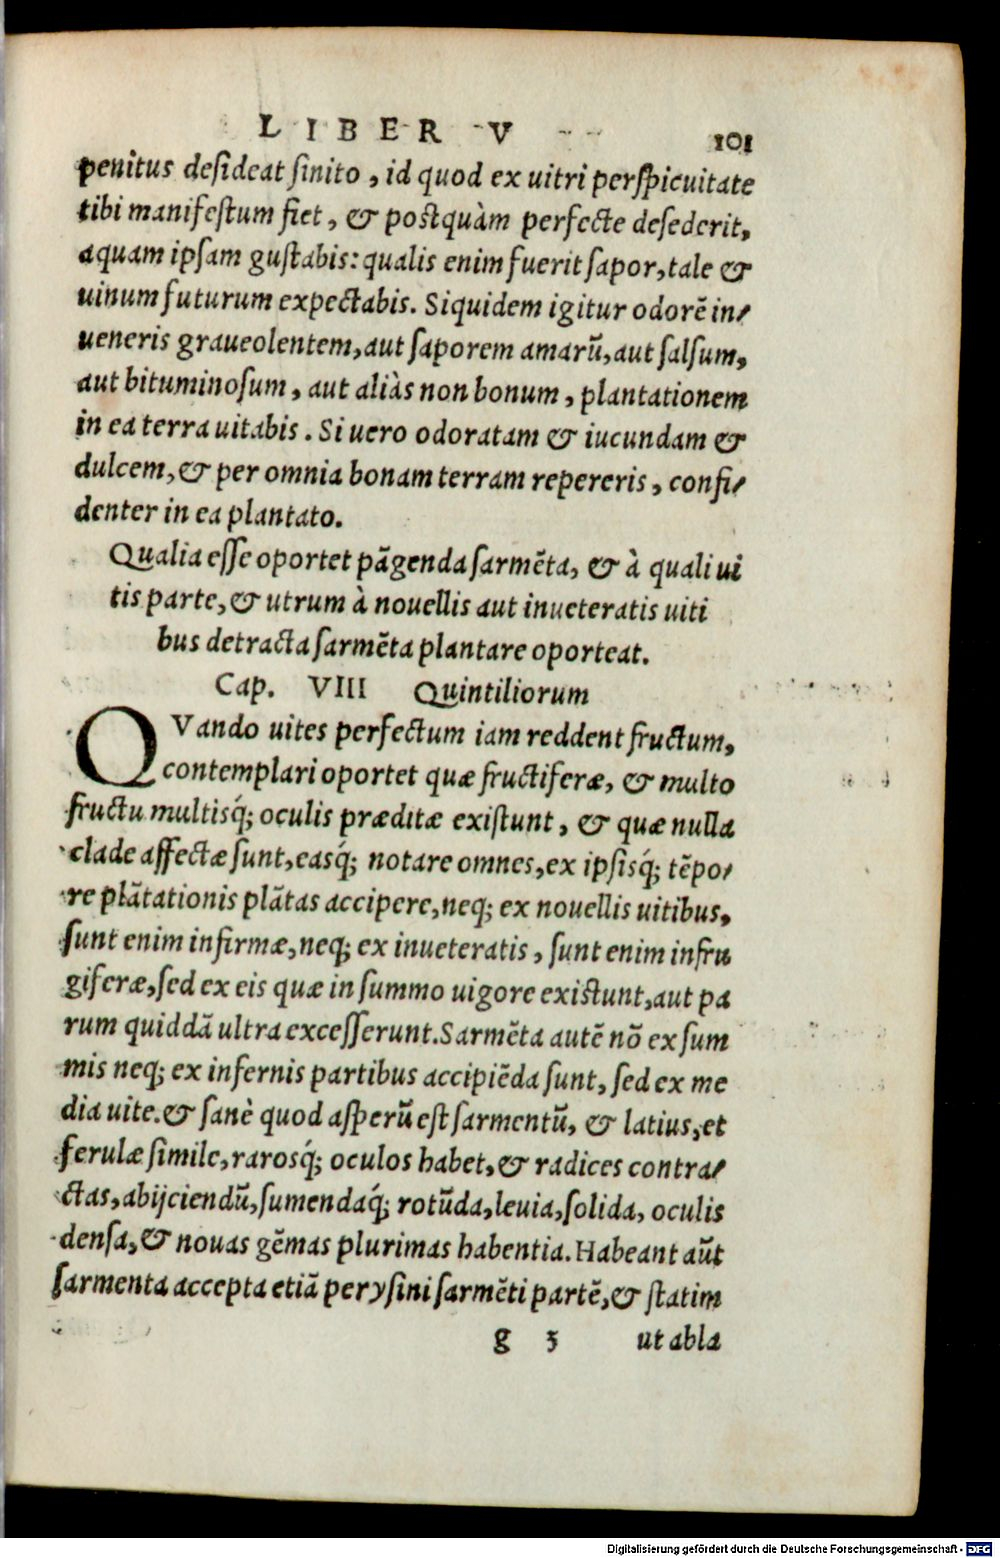 LIBER V 101
penitus desideat sinito, id quod ex uitri perspicuitate
tibi manifestum fiet, & postquàm perfecte desederit,
aquam ipsam gustabis: qualis enim fuerit sapor, tale &
uinum futurum expectabis. Siquidem igitur odorē in-
ueneris graueolentem, aut saporem amarū, aut salsum,
aut bituminosum, aut aliàs non bonum, plantationem
in ea terra uitabis. Si uero odoratam & iucundam &
dulcem, & per omnia bonam terram repereris, confi-
denter in ea plantato.
Qualia esse oportet pāgenda sarmēta, & à quali ui
tis parte, & utrum à nouellis aut inueteratis uiti
bus detracta sarmēta plantare oporteat.
Cap. VIII Quintiliorum
QVando uites perfectum iam reddent fructum,
contemplari oportet quæ fructiferæ, & multo
fructu multisq́; oculis præditæ existunt, & quæ nulla
clade affectæ sunt, easq́; notare omnes, ex ipsisq́; tēpo-
re plātationis plātas accipere, neq; ex nouellis uitibus,
sunt enim infirmæ, neq; ex inueteratis, sunt enim infru
giferæ, sed ex eis quæ in summo uigore existunt, aut pa
rum quiddā ultra excesserunt. Sarmēta autē nō ex sum
mis neq; ex infernis partibus accipiēda sunt, sed ex me
dia uite. & sanè quod asperū est sarmentū, & latius, et
ferulæ simile, rarosq́; oculos habet, & radices contra-
ctas, abijciendū, sumendaq́; rotūda, leuia, solida, oculis
densa, & nouas gēmas plurimas habentia. Habeant aūt
sarmenta accepta etiā per ysini sarmēti partē, & statim
g 3 ut abla
Digitalisierung gefördert durch die Deutsche Forschungsgemeinschaft - DFG